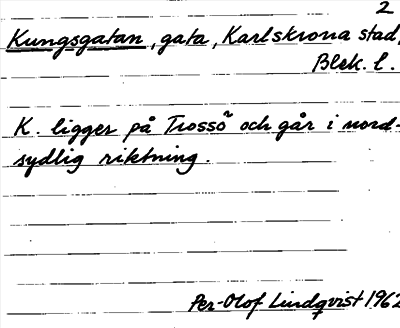 2
Kungsgatan, gata, Karlskrona stad,
Blek. l.
K. ligger på Trossö och går i nord-
sydlig riktning.
Per-Olof Lindqvist 1962